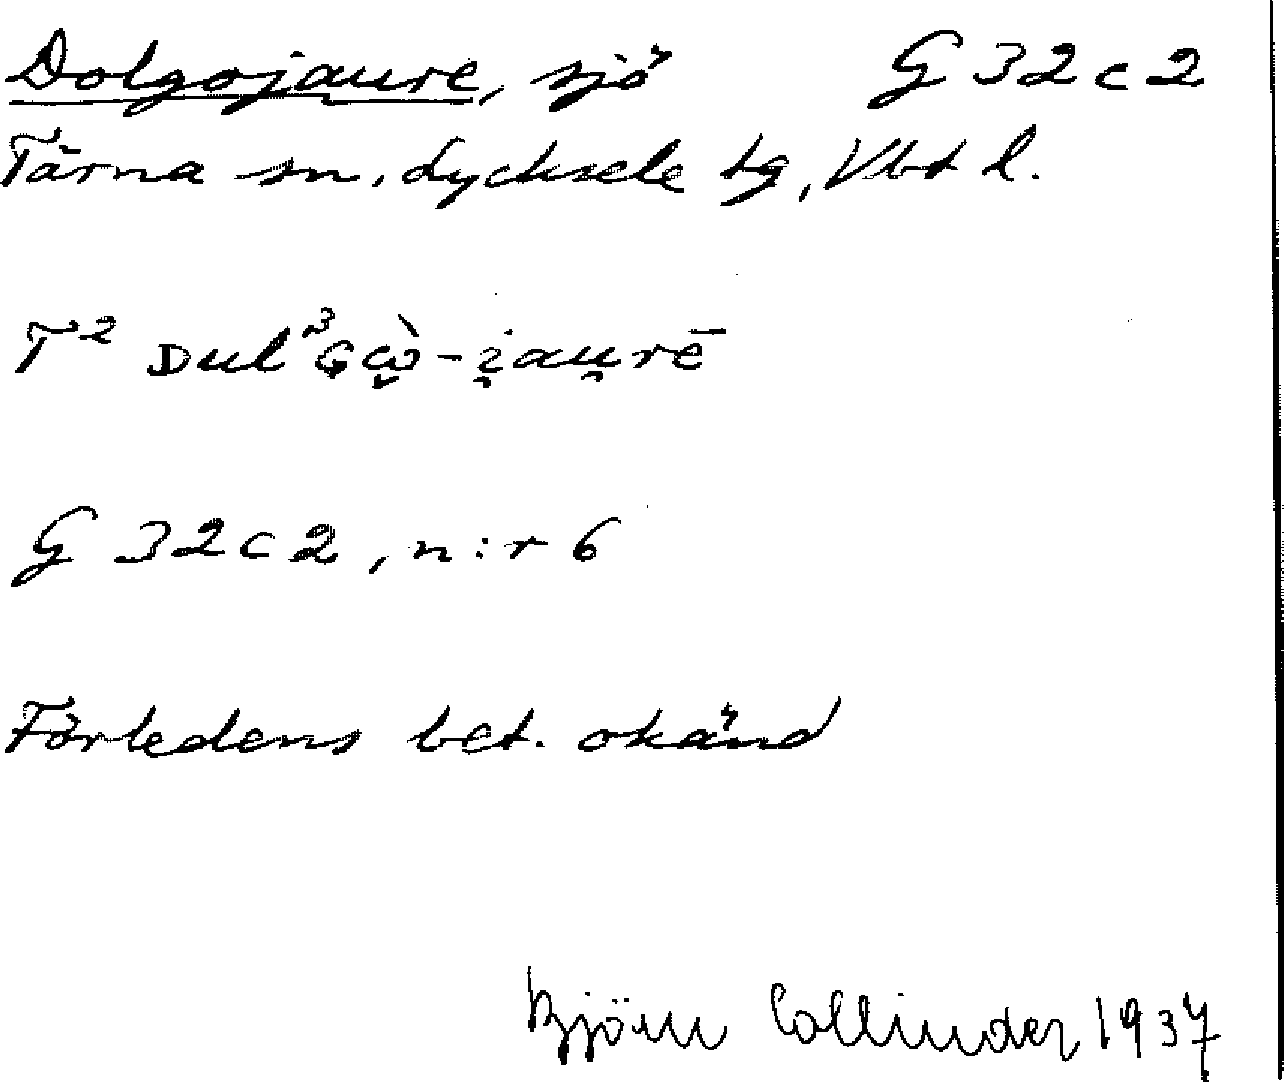 Dolgojaure, sjö G 32 c 2
Tärna sn, Lycksele tg, Vbt l.
T² ᴅul³ɢὼ̯-i̯au̯rē
G 32 c 2, n:r 6
Förledens bet. okänd
Björn Collinder 1937